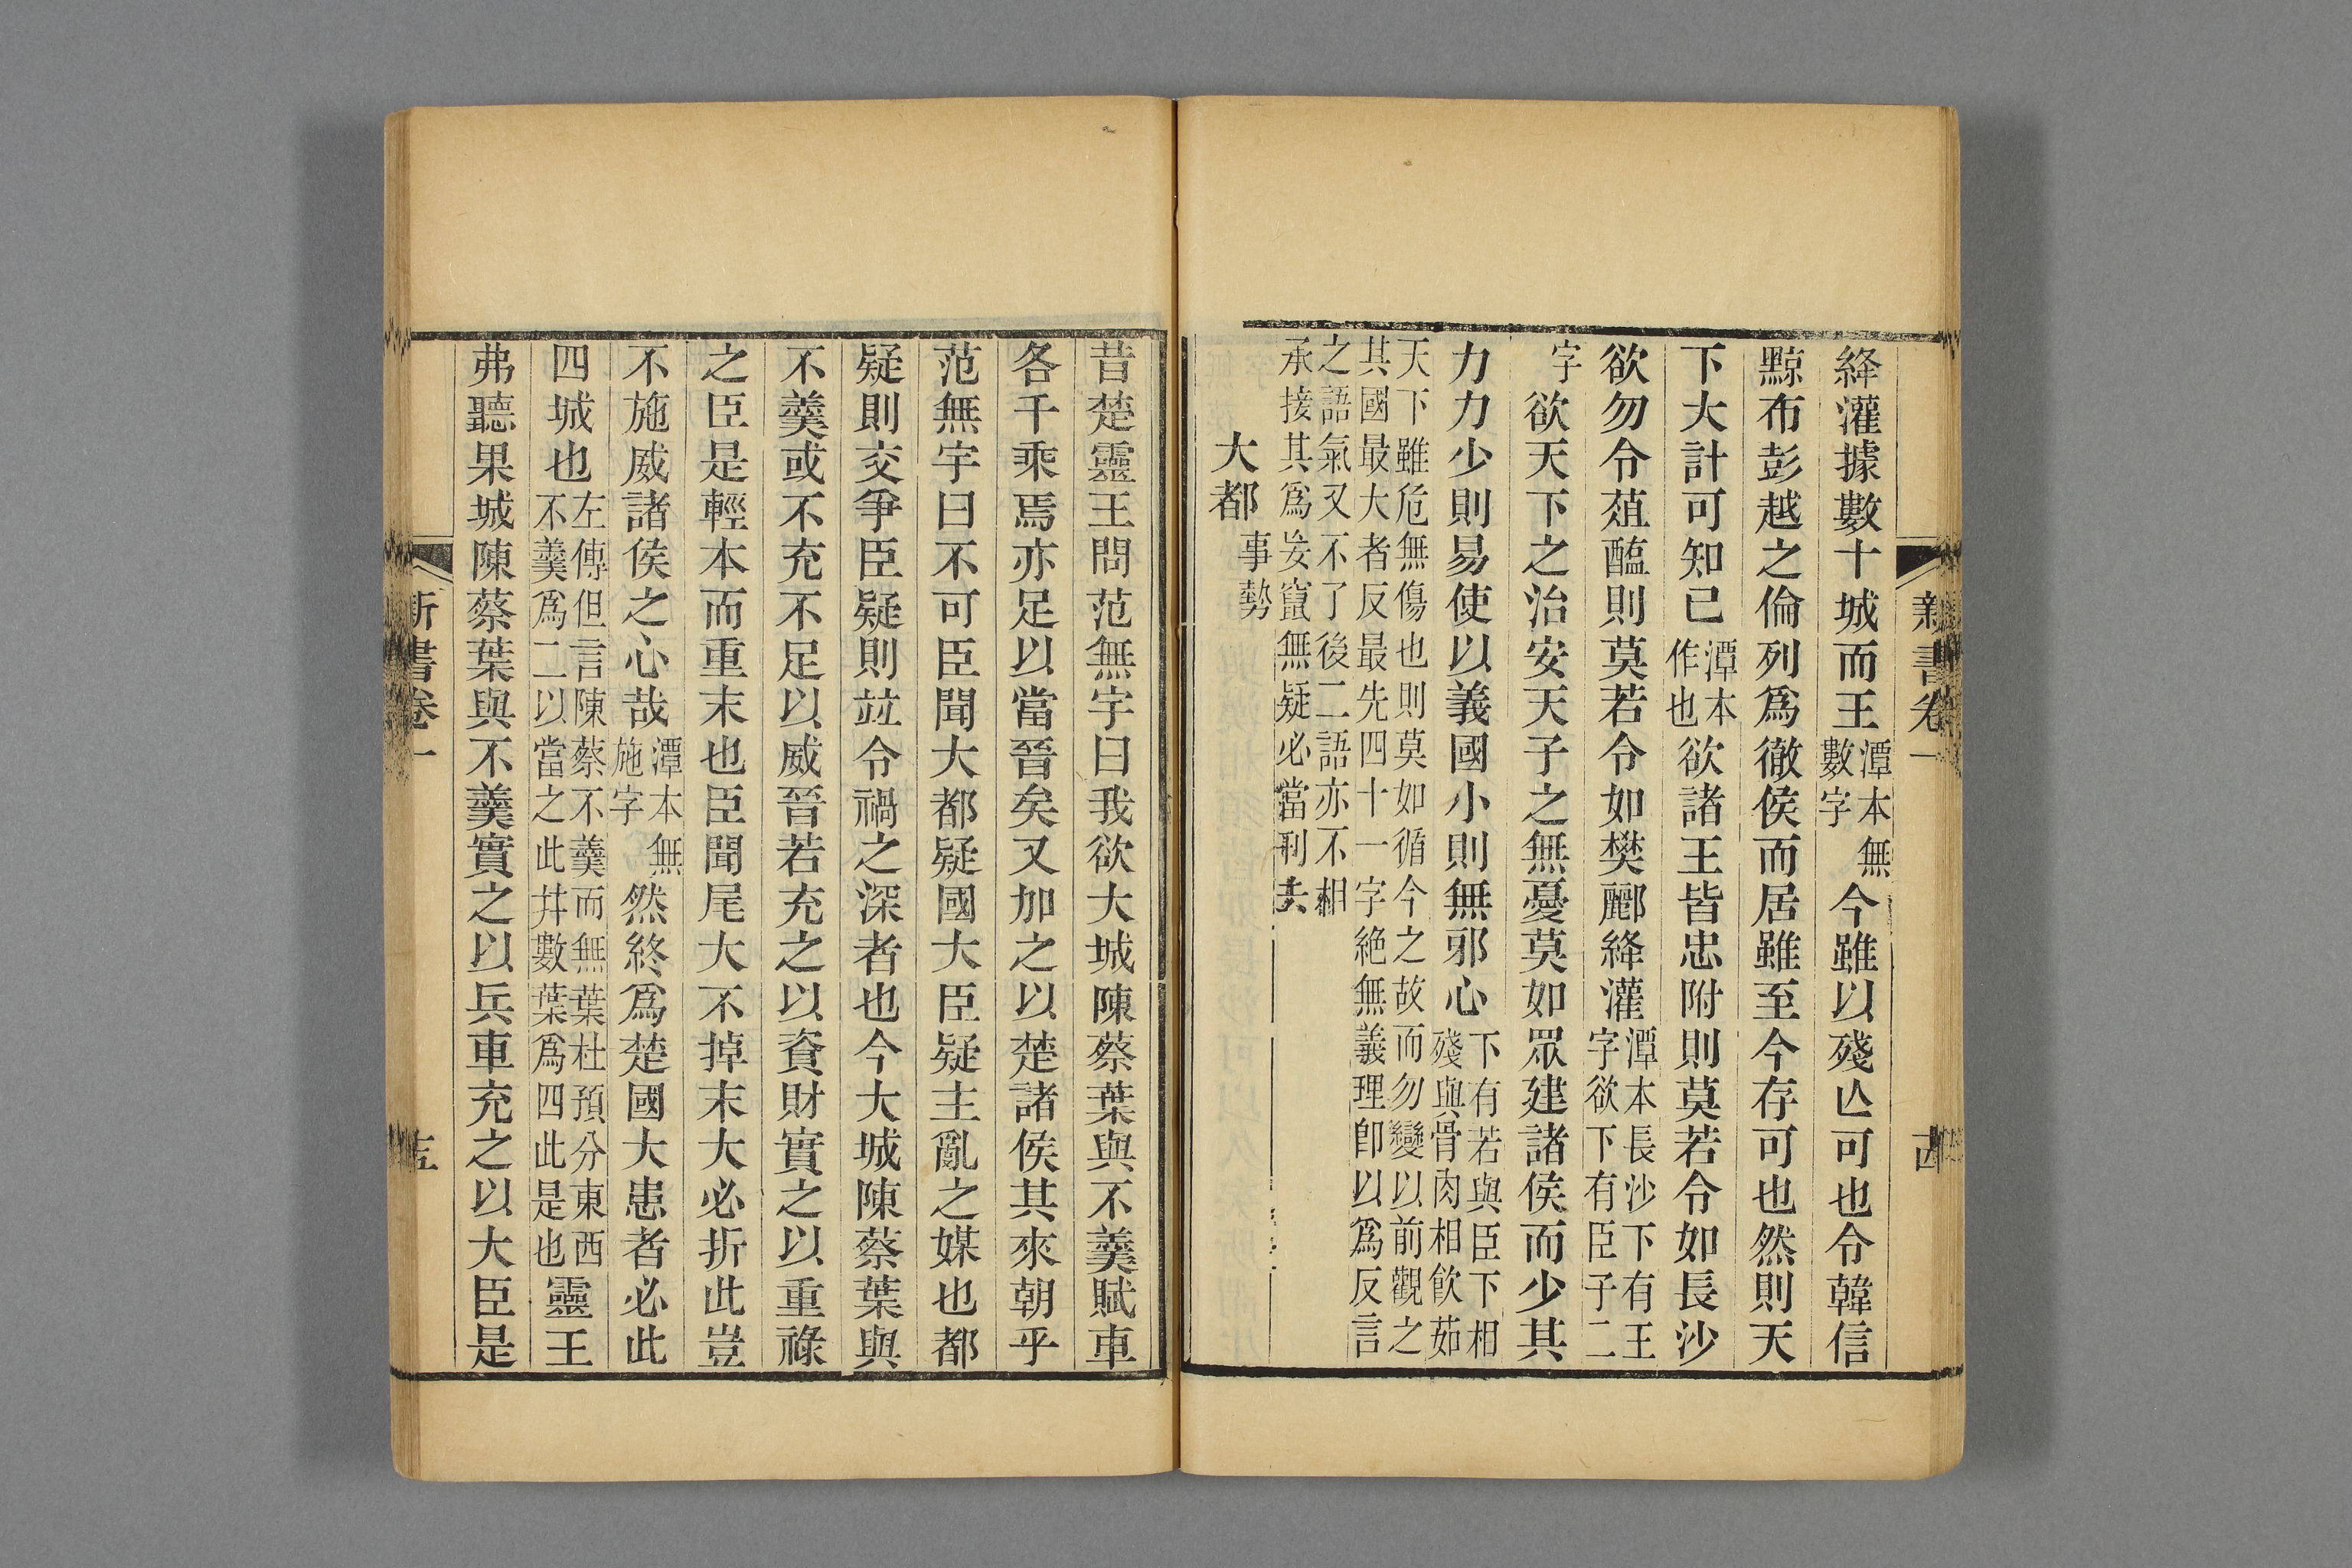 新書卷一
絳灌據數十城而王潭本無數字今雖以殘亾可也令韓信
黥布彭越之倫列爲徹侯而居雖至今存可也然則天
下大計可知已潭本作也欲諸王皆忠附則莫若令如長沙
欲勿令葅醢則莫若令如樊酈絳灌潭本長沙下有王字欲下有臣子二
字欲天下之治安天子之無憂莫如眾建諸侯而少其
力力少則易使以義國小則無邪心下有若與臣下相殘與骨肉相飮茹
天下雖危無傷也則莫如循今之故而勿變以前觀之
其國最大者反最先四十一字絕無義理卽以爲反言
之語氣又不了後二語亦不相
承接其爲妄竄無疑必當刪去
大都 事勢
昔楚靈王問范無宇曰我欲大城陳蔡葉與不羹賦車
各千乘焉亦足以當晉矣又加之以楚諸侯其來朝乎
范無宇曰不可臣聞大都疑國大臣疑主亂之媒也都
疑則交爭臣疑則竝令禍之深者也今大城陳蔡葉與
不羹或不充不足以威晉若充之以資財實之以重祿
之臣是輕本而重末也臣聞尾大不掉末大必折此豈
不施威諸侯之心哉潭本無施字然終爲楚國大患者必此
四城也左傳但言陳蔡不羹而無葉杜預分東西不羹爲二以當之此幷數葉爲四此是也靈王
弗聽果城陳蔡葉與不羹實之以兵車充之以大臣是
新書卷一